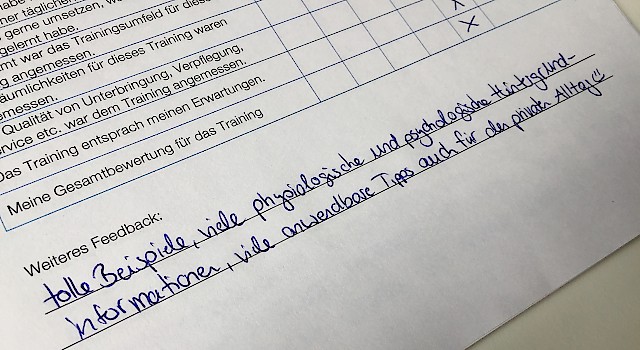 habe
ner täglichen
s gerne umsetzen, w
gelernt habe.
mt war das Trainingsumfeld für diese
g angemessen.
äumlichkeiten für dieses Training waren
emessen.
Qualität von Unterbringung, Verpflegung,
ervice etc. war dem Training angemessen.
Das Training entsprach meinen Erwartungen.
Meine Gesamtbewertung für das Training
X
X
Weiteres Feedback:
tolle Beispiele, viele physiologische und psychologische Hintergrund-
informationen, viele anwendbare Tipps auch für den privaten Alltag